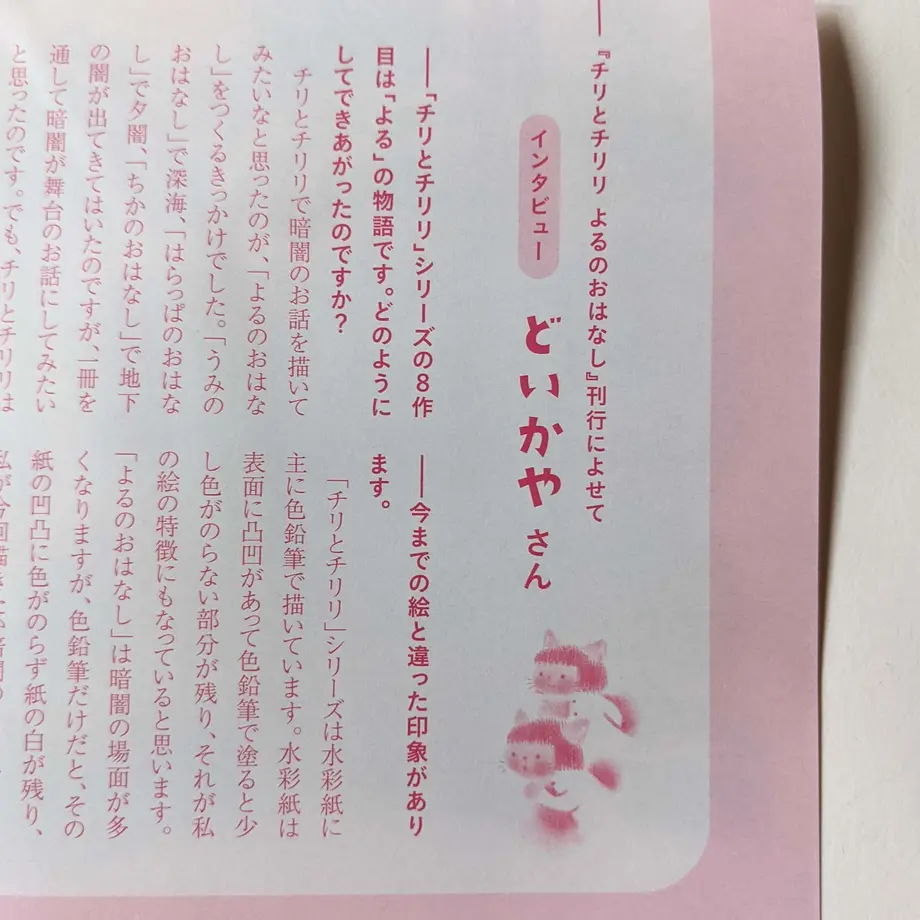 『チリとチリリ よるのおはなし』刊行によせて
インタビュー
どいかやさん
――「チリとチリリ」シリーズの8作
目は「よる」の物語です。どのように
してできあがったのですか？
チリとチリリで暗闇のお話を描いて
みたいなと思ったのが、「よるのおはな
し」をつくるきっかけでした。「うみの
おはなし」で深海、「はらっぱのおはな
し」で夕闇、「ちかのおはなし」で地下
の闇が出てきてはいたのですが、一冊を
通して暗闇が舞台のお話にしてみたい
と思ったのです。でも、チリとチリリは
――今までの絵と違った印象があり
ます。
「チリとチリリ」シリーズは水彩紙に
主に色鉛筆で描いています。水彩紙は
表面に凸凹があって色鉛筆で塗ると少
し色がのらない部分が残り、それが私
の絵の特徴にもなっていると思います。
「よるのおはなし」は暗闇の場面が多
くなりますが、色鉛筆だけだと、その
紙の凹凸に色がのらず紙の白が残り、
私が今回描きたい暗闇の